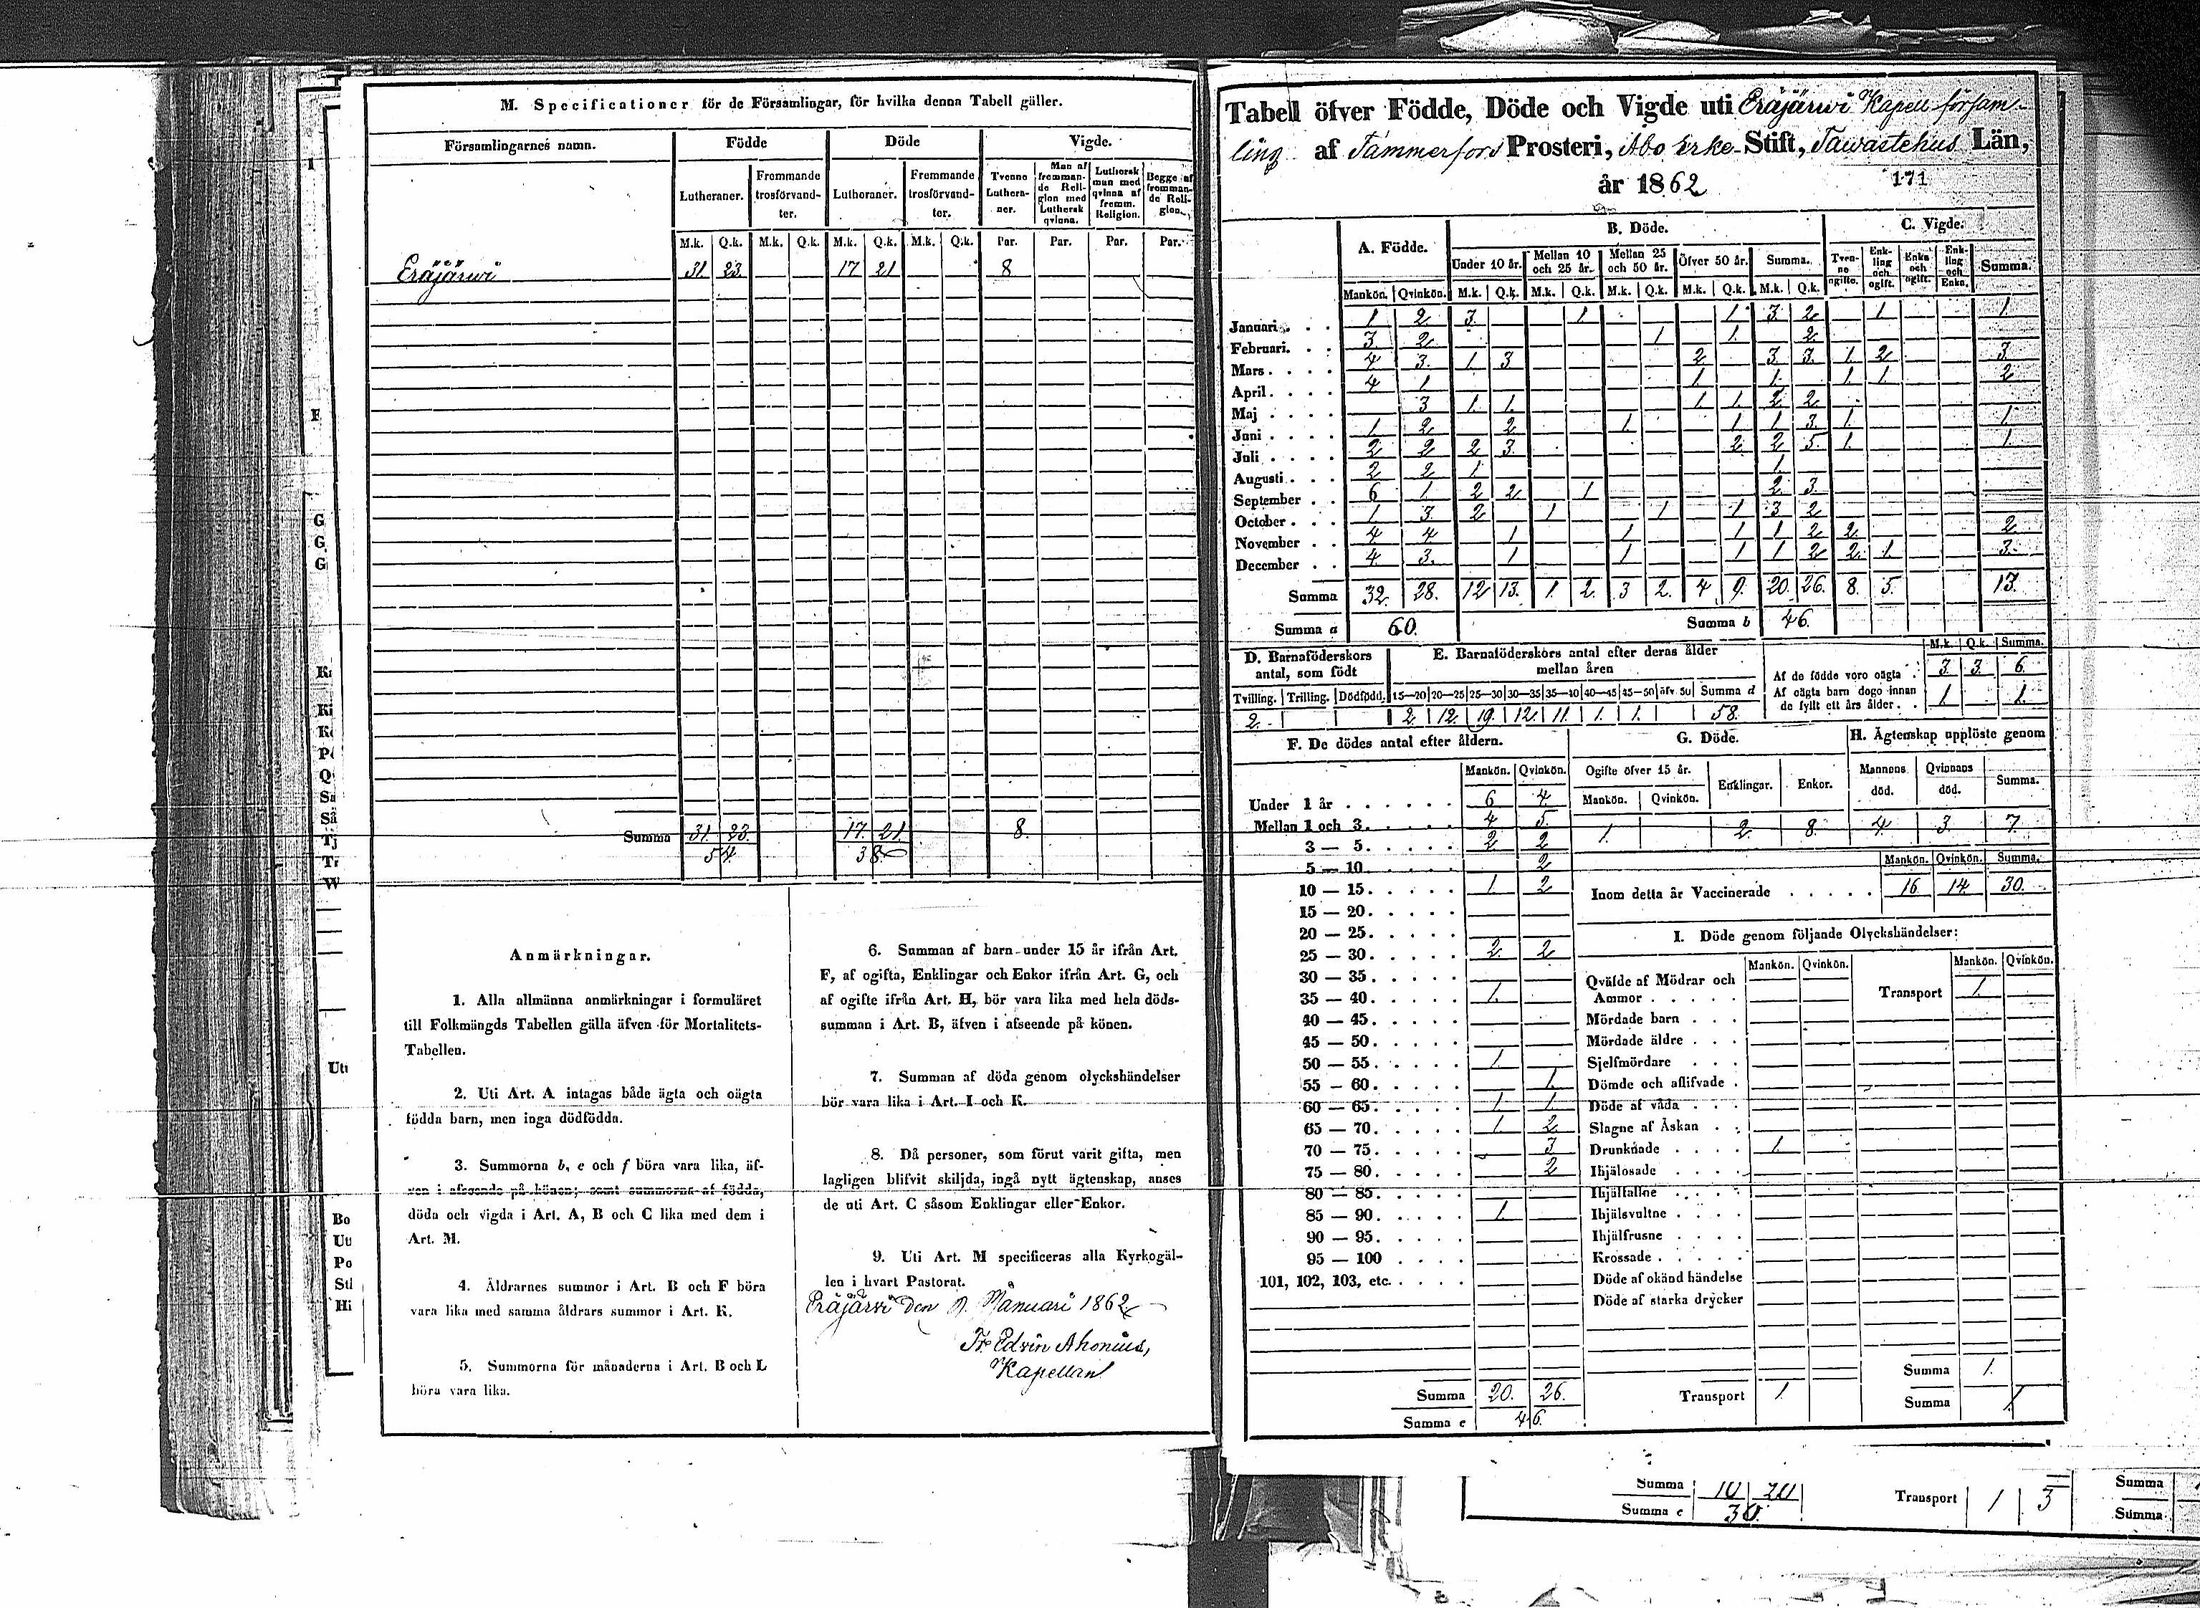 M. Specificationer för de Församlingar, för hvilka denna Tabell gäller.
Församlingarnes namn.
Födde
Döde
Vigde.
Lutheraner.
Fremmande trosförvandter.
Lutheraner.
Fremmande trosförvandter.
Tvenne Lutheraner.
Man af fremmande Religion med Luthersk qvinna.
Luthersk man med qvinna af fremm. Religion.
Begge af fremmande Religion.
M.k. Q.k. M.k. Q.k. M.k. Q.k. M.k. Q.k. Par. Par. Par. Par.
Eräjärwi 31 23 17 21 8
Summa 31. 23. 17. 21 8.
54. 38
Anmärkningar.
1. Alla allmänna anmärkningar i formuläret
till Folkmängds Tabellen gälla äfven för Mortalitets-
Tabellen.
2. Uti Art. A intagas både ägta och oägta
födda barn, men inga dödfödda.
3. Summorna b, e och f böra vara lika, äf-
ven i afseende på könen; samt summorna af födda,
döda och vigda i Art. A, B och C lika med dem i
Art. M.
4. Åldrarnes summor i Art. B och F böra
vara lika med samma åldrars summor i Art. K.
5. Summorna för månaderna i Art. B och L
böra vara lika.
6. Summan af barn under 15 år ifrån Art.
F, af ogifta, Enklingar och Enkor ifrån Art. G, och
af ogifte ifrån Art. H, bör vara lika med hela döds-
summan i Art. B, äfven i afseende på könen.
7. Summan af döda genom olyckshändelser
bör vara lika i Art. I och K.
8. Då personer, som förut varit gifta, men
lagligen blifvit skiljda, ingå nytt ägtenskap, anses
de uti Art. C såsom Enklingar eller Enkor.
9. Uti Art. M specificeras alla Kyrkogäl-
len i hvart Pastorat.
Eräjärvi den Januari 1862
Fr Edvin Ahonius,
Kapellan
Tabell öfver Födde, Döde och Vigde uti Eräjärwi Kapell församling
af Tammerfors Prosteri, Åbo Erke-Stift, Tawastehus Län,
år 1862
171
A. Födde. B. Döde. C. Vigde.
Under 10 år. Mellan 10 och 25 år. Mellan 25 och 50 år. Öfver 50 år. Summa. Tvenne ogifte. Enkling och ogift. Enka och ogift. Enkling och Enka. Summa.
Mankön. Qvinkön. M.k. Q.k. M.k. Q.k. M.k. Q.k. M.k. Q.k. M.k. Q.k.
Januari 1 2 3 1 1 3 2 1 1
Februari. 3 2 1 1. 2
Mars 4 3. 1 3 2 3 3. 1. 2 3
April. 4 1 1 1. 1 1. 2
Maj 3 1. 1. 1 1. 2 2
Juni 1 2 2 1. 1 1 3. 1. 1
Juli 2 2 2 3. 2 2 5. 1. 1
Augusti 2 2 1 1.
September 6 1 2 2 1 2 3.
October 1 3 2 1 1 1 3 2
November 4 4 1 1 1 1 2 2 2
December 4 3. 1 1 1 1 2 2. 1 3
Summa 32. 28. 12 13. 1. 2. 3 2. 4 9. 20. 26. 8. 5. 13.
Summa a 60. Summa b 46.
D. Barnaföderskors antal, som födt
Tvilling. Trilling. Dödfödd.
2.
E. Barnaföderskors antal efter deras ålder mellan åren
15—20 20—25 25—30 30—35 35—40 40—45 45—50 öfv. 50 Summa d
2. 12. 19. 12. 11. 1. 1. 58.
M.k. Q.k. Summa.
Af de födde voro oägta 3. 3. 6.
Af oägta barn dogo innan de fyllt ett års ålder 1. 1.
F. De dödes antal efter åldern.
Mankön. Qvinkön.
Under 1 år 6 4
Mellan 1 och 3. 4 5.
3 — 5. 2 2
5 — 10. 2
10 — 15. 1. 2
15 — 20.
20 — 25.
25 — 30. 2. 2
30 — 35.
35 — 40. 1.
40 — 45.
45 — 50.
50 — 55. 1.
55 — 60. 1.
60 — 65. 1. 1.
65 — 70. 1. 2.
70 — 75. 3
75 — 80. 2
80 — 85.
85 — 90. 1.
90 — 95.
95 — 100
101, 102, 103, etc.
Summa 20. 26.
Summa e 46.
G. Döde.
Ogifte öfver 15 år. Enklingar. Enkor.
Mankön. Qvinkön.
1. 2. 8.
H. Ägtenskap upplöste genom
Mannens död. Qvinnans död. Summa.
4. 3. 7.
Mankön. Qvinkön. Summa.
Inom detta år Vaccinerade 16 14 30.
I. Döde genom följande Olyckshändelser:
Mankön. Qvinkön. Mankön. Qvinkön.
Qväfde af Mödrar och Ammor
Transport 1.
Mördade barn
Mördade äldre
Sjelfmördare
Dömde och aflifvade
Döde af våda
Slagne af Åskan
Drunknade 1.
Ihjälosade
Ihjälfallne
Ihjälsvultne
Ihjälfrusne
Krossade
Döde af okänd händelse
Döde af starka drycker
Summa 1.
Transport 1. Summa 1.
Summa 10 20
Summa e 30.
Transport 1 3
Summa
Summa